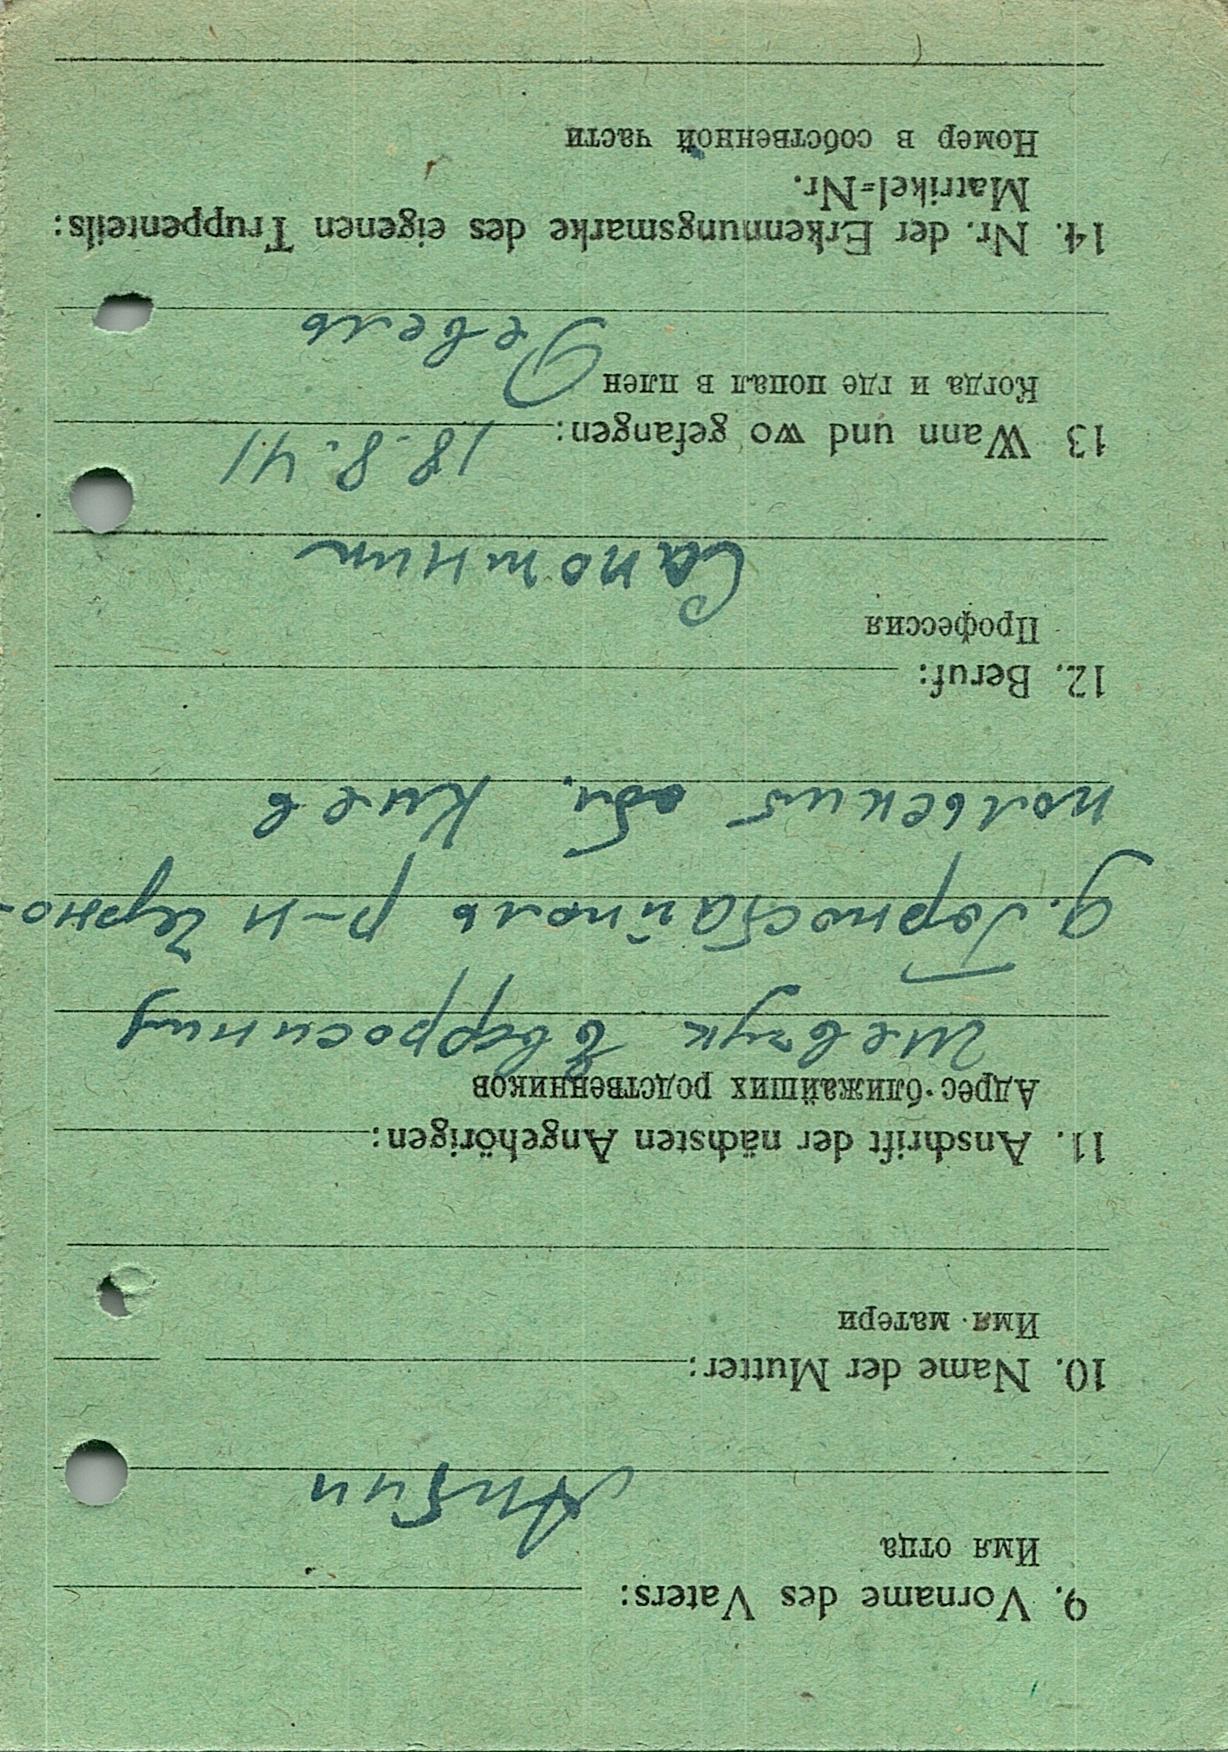 9. Vorname des Vaters:
Имя отца
10. Name der Mutter:
Имя матери
11. Anschrift der nächsten Angehörigen:
Адрес ближайших родственников
Шевчук
д. Горностайполь р-н Черно-
польский обл. Киев
12. Beruf:
Профессия
Сапотник
13 Wann und wo gefangen: 18.8.41
Когда и где попал в плен
Ревель
14. Nr. der Erkennungsmarke des eigenen Truppenteils:
Matrikel=Nr.
Номер в собственной части